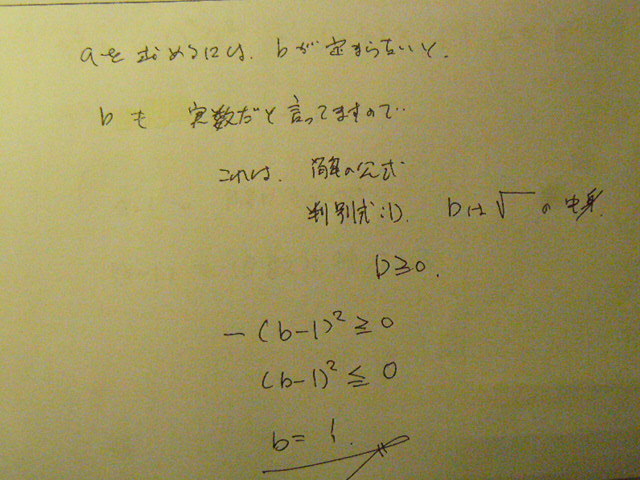 aを求めるには、bが定まらないと、
bも 実数だと言ってますので‥
これは、解の公式
判別式:D、 Dは√の中身、
D≧0、
-(b-1)²≧0
(b-1)²≦0
b=1.